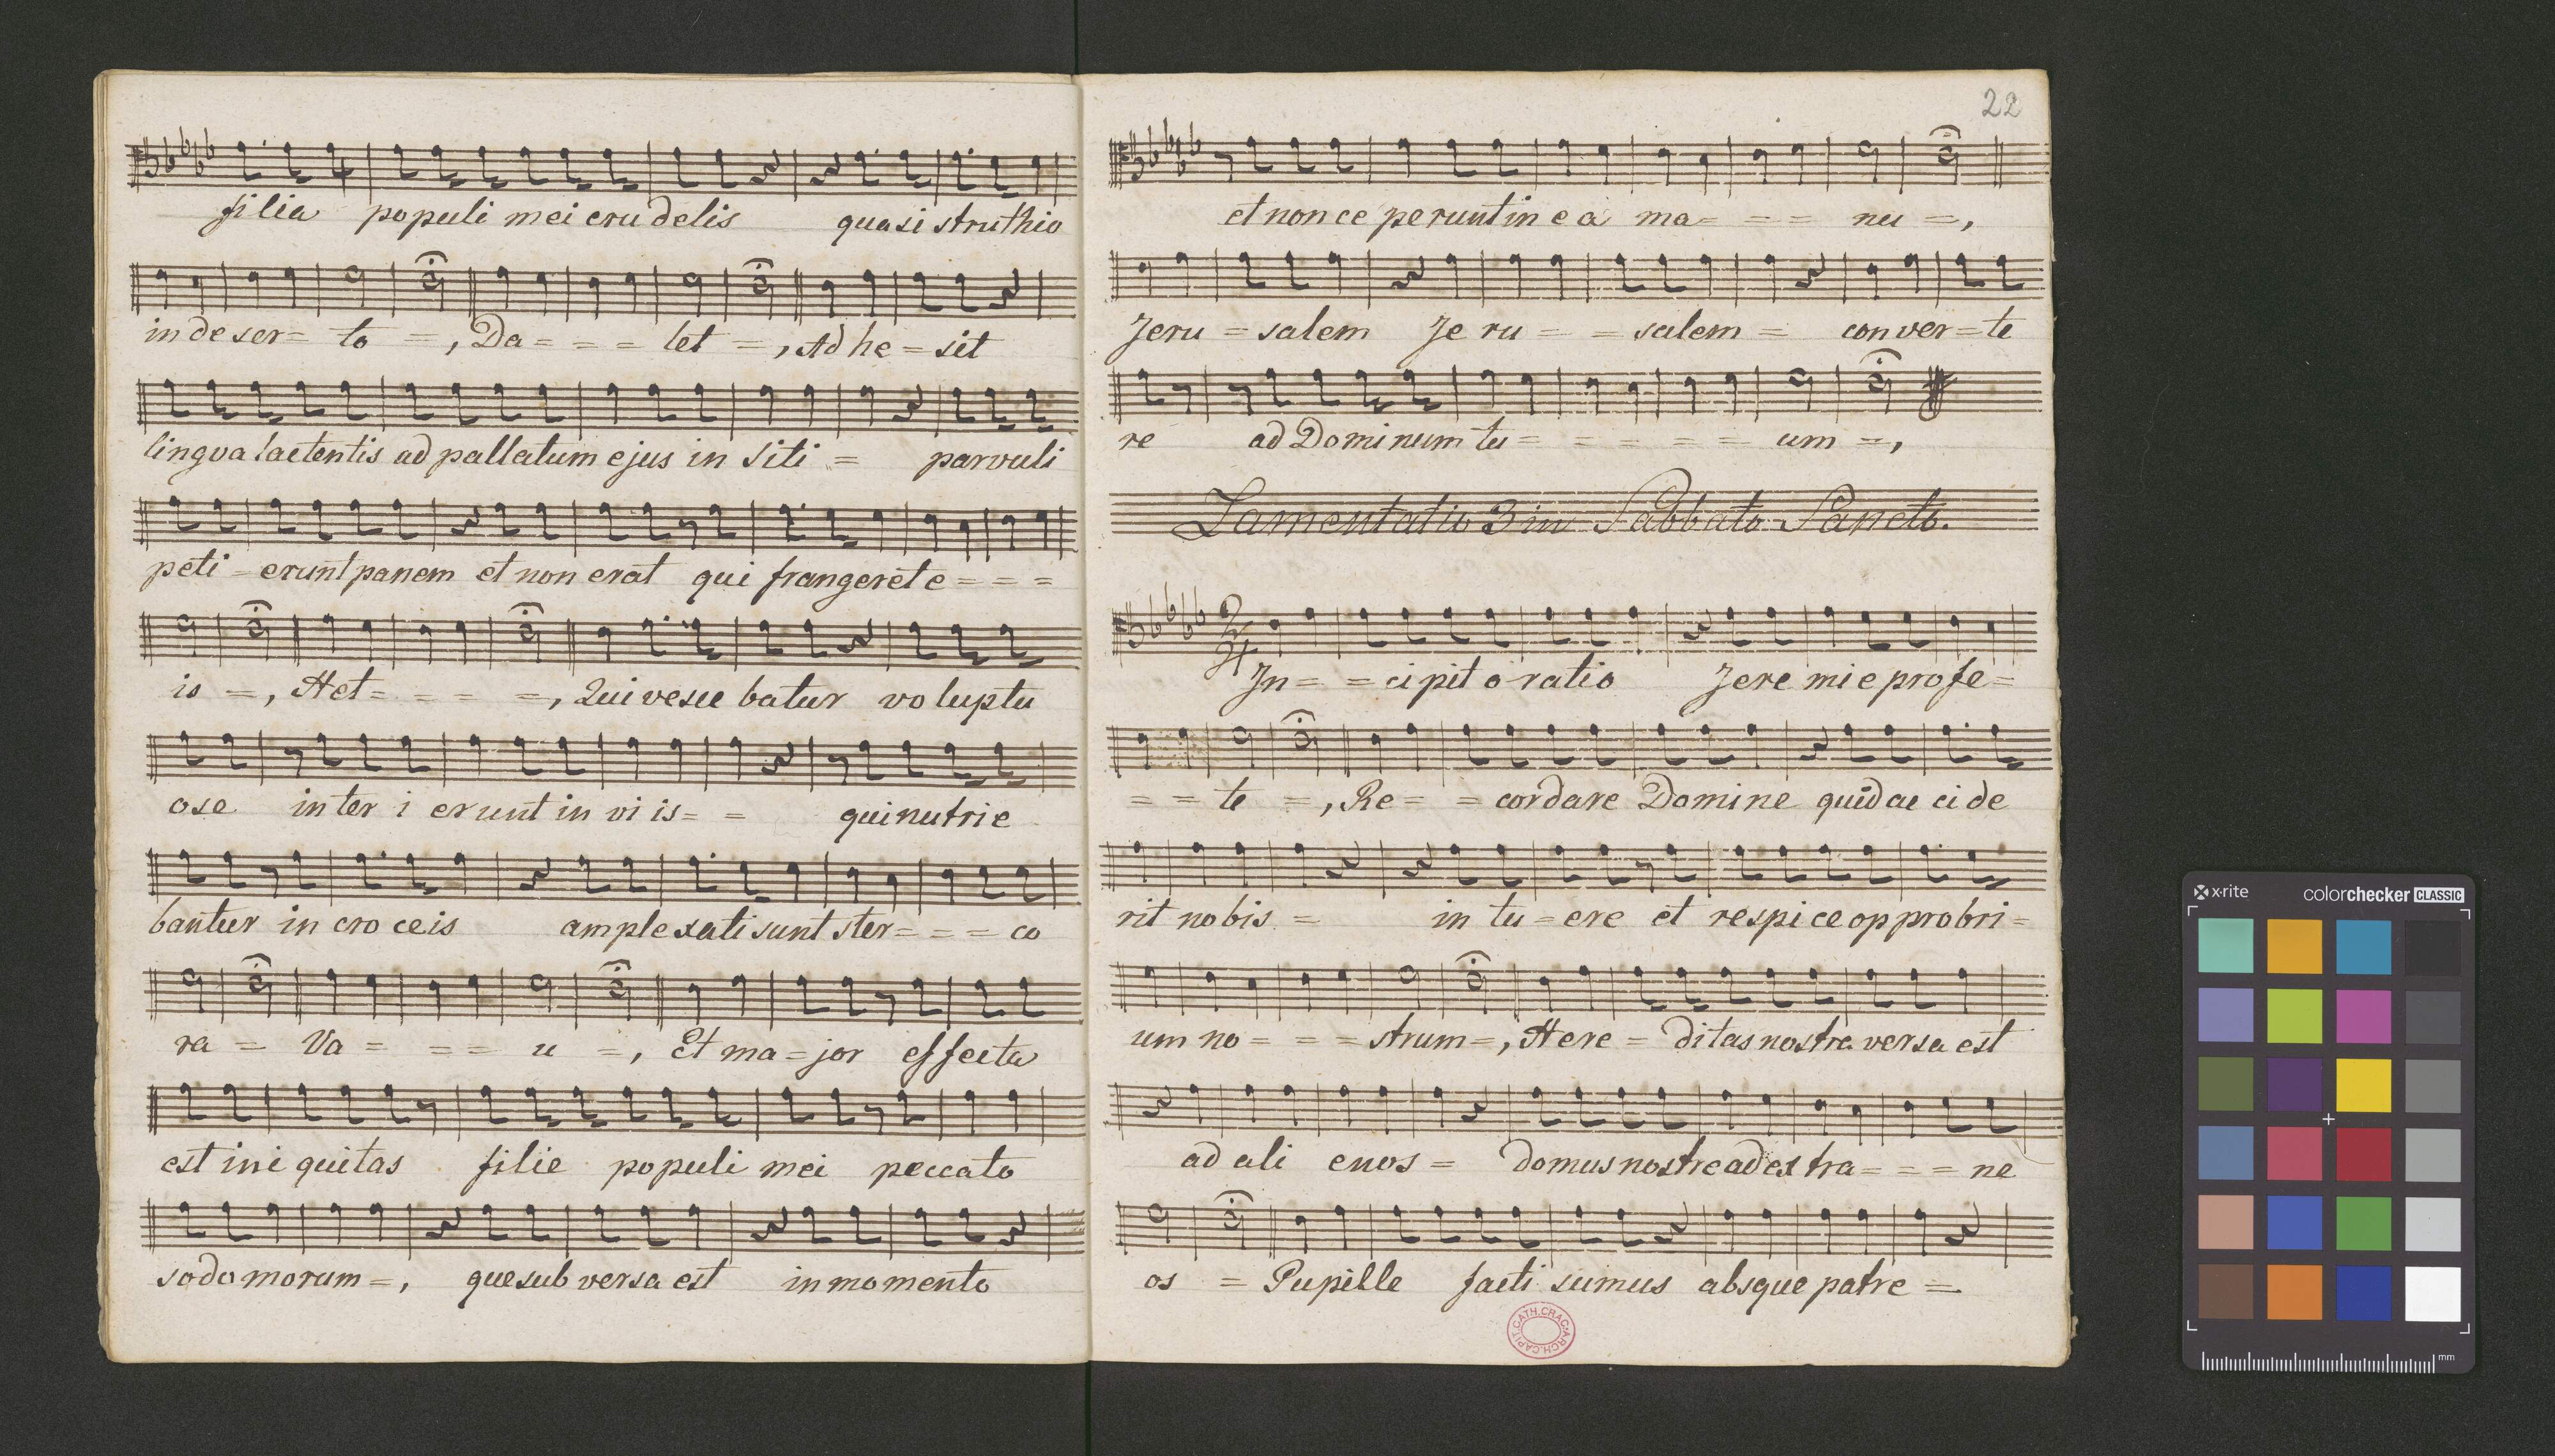 filia populi mei crudelis quasi struthio
in deser= to =, Da= = = let =, Ad he=sit
lingva lactentis ad pallatum ejus in siti = parvuli
peti=erunt panem et non erat qui frangeret e= = =
is =, Het= = = =, Qui vescebatur voluptu
ose interierunt in viis= = qui nutrie
bantur in croceis amplexati sunt ster= = = co
ra = Va = = = u =, Et ma=jor effecta
est iniquitas filie populi mei peccato
sodomorum =, que subversa est in momento
22
et non ceperunt in ea ma= = = nu =,
Jeru = salem Jeru = = salem = conver=te
re ad Dominum tu= = = = = um =,
Lamentatio 3 in Sabbato Sancto.
3/4
In= = cipit oratio Jeremie profe=
= = te =, Re= = cordare Domine quid acide
rit nobis = in tu=ere et respice opprobri=
um no= = =strum=, Here= ditas nostra versa est
ad alienos = domus nostre ad extra= = = ne
os = Pupille facti sumus absque patre =
ARCH.CAPIT.CATH.CRAC.
x·rite colorchecker CLASSIC
mm